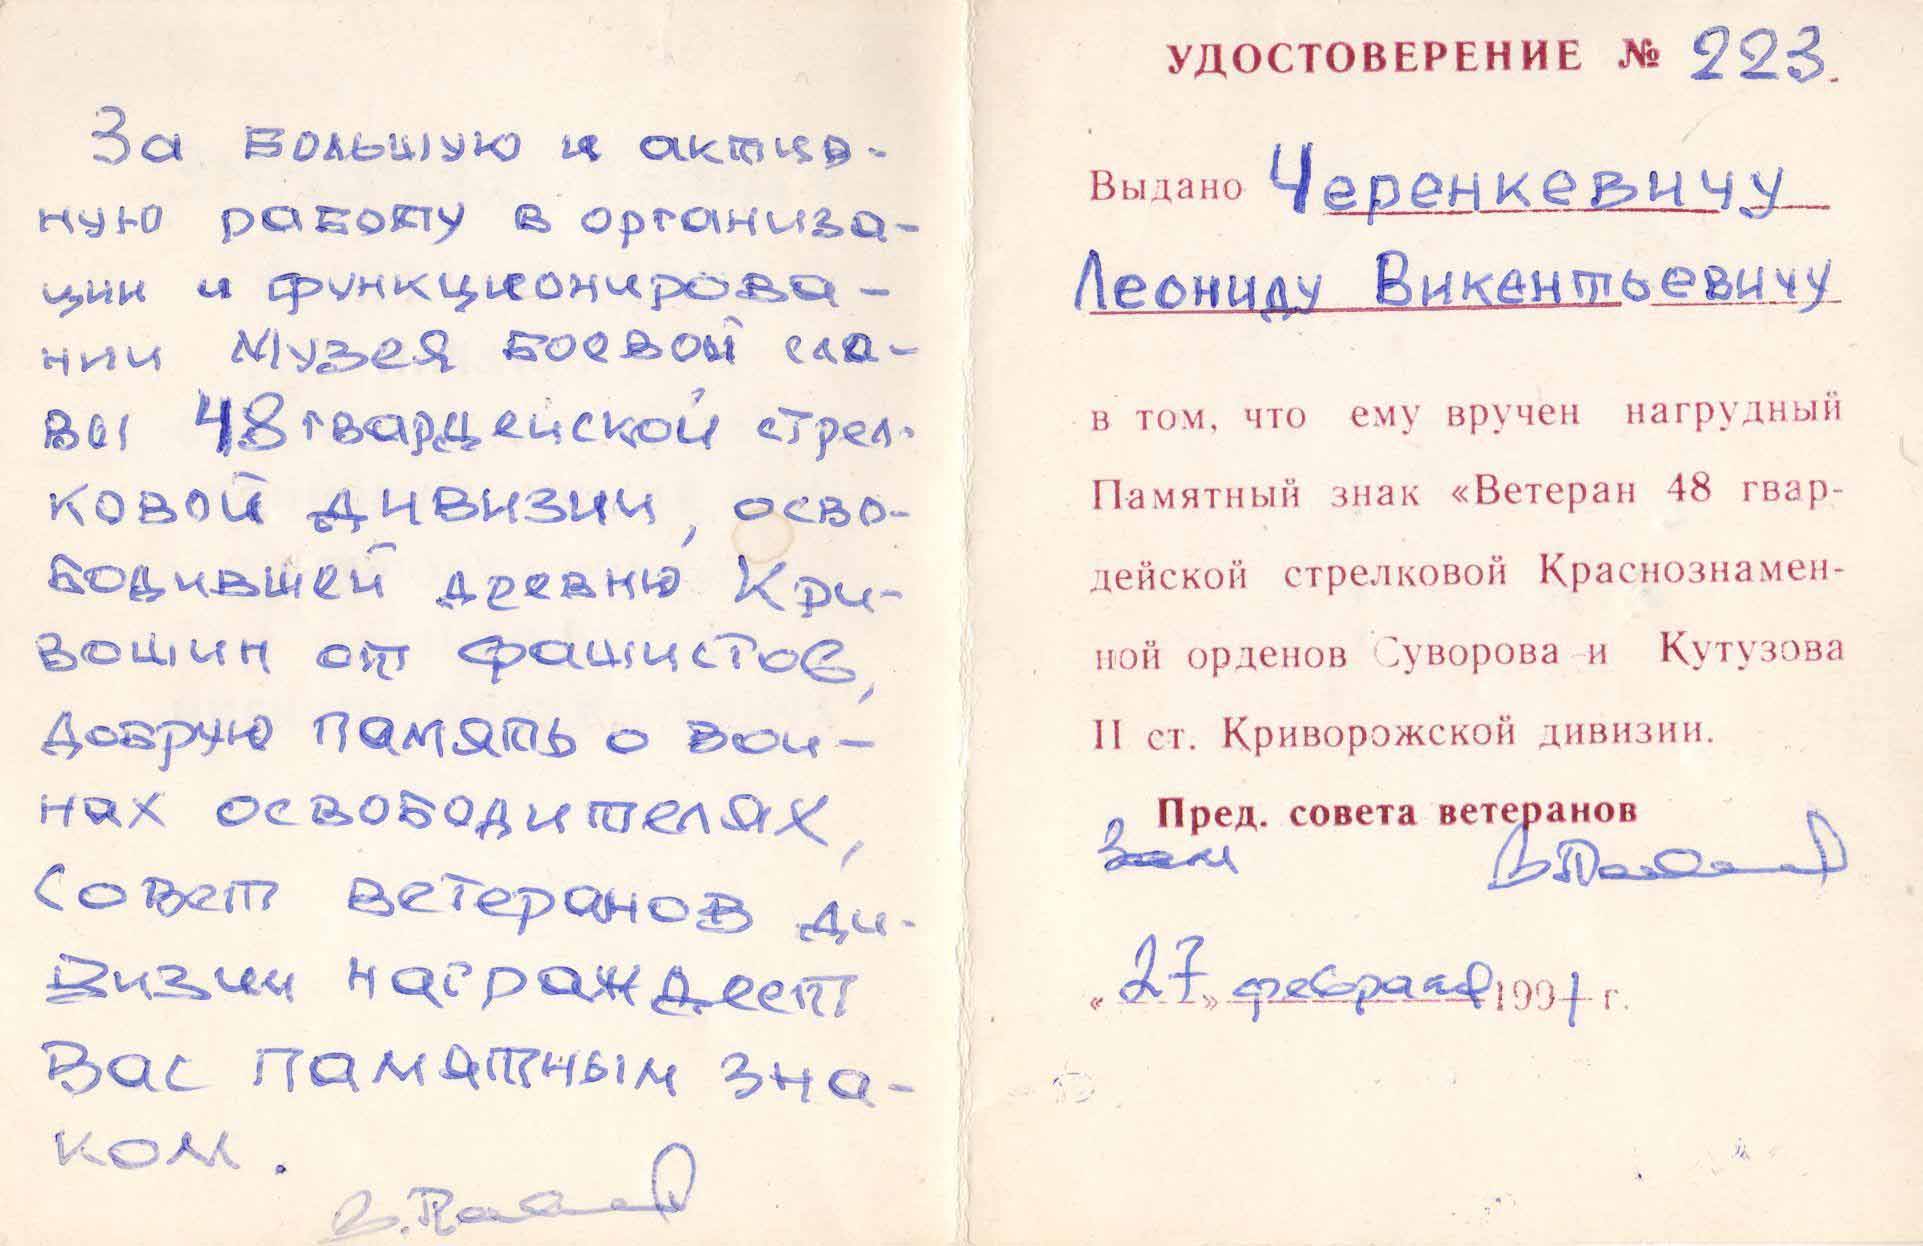 За большую и актив-
ную работу в организа-
ции и функционирова-
нии Музея боевой сла-
вы 48 гвардейской стрел-
ковой дивизии, осво-
бодившей древню Кри-
вошин от фашистов,
добрую память о вои-
нах освободителях,
Совет ветеранов ди-
визии награждает
Вас памятным зна-
ком.
УДОСТОВЕРЕНИЕ № 223.
Выдано Черенкевичу
Леониду Викентьевичу
в том, что ему вручен нагрудный
Памятный знак «Ветеран 48 гвар-
дейской стрелковой Краснознамен-
ной орденов Суворова и Кутузова
II ст. Криворожской дивизии.
Пред. совета ветеранов
Зам
«27» февраля 1991 г.